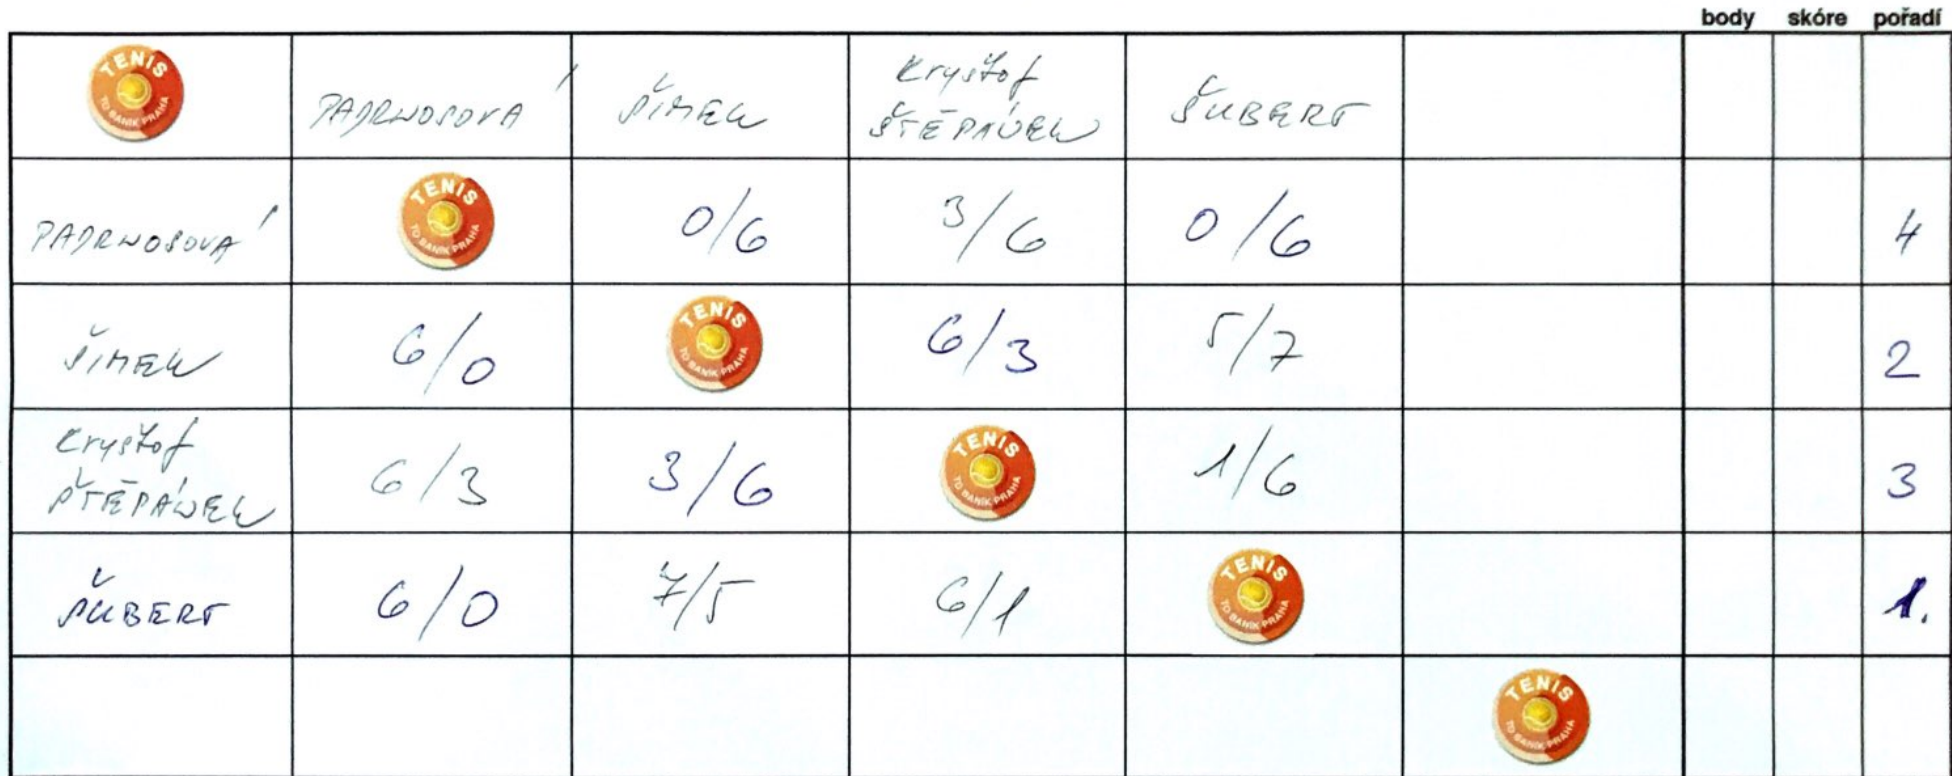 body skóre pořadí
TENIS TO BANÍK PRAHA PADRNOSOVÁ ŠIMEK Kryštof ŠTĚPÁNEK ŠUBERT
PADRNOSOVÁ TENIS TO BANÍK PRAHA 0/6 3/6 0/6 4
ŠIMEK 6/0 TENIS TO BANÍK PRAHA 6/3 5/7 2
Kryštof ŠTĚPÁNEK 6/3 3/6 TENIS TO BANÍK PRAHA 1/6 3
ŠUBERT 6/0 7/5 6/1 TENIS TO BANÍK PRAHA 1.
TENIS TO BANÍK PRAHA